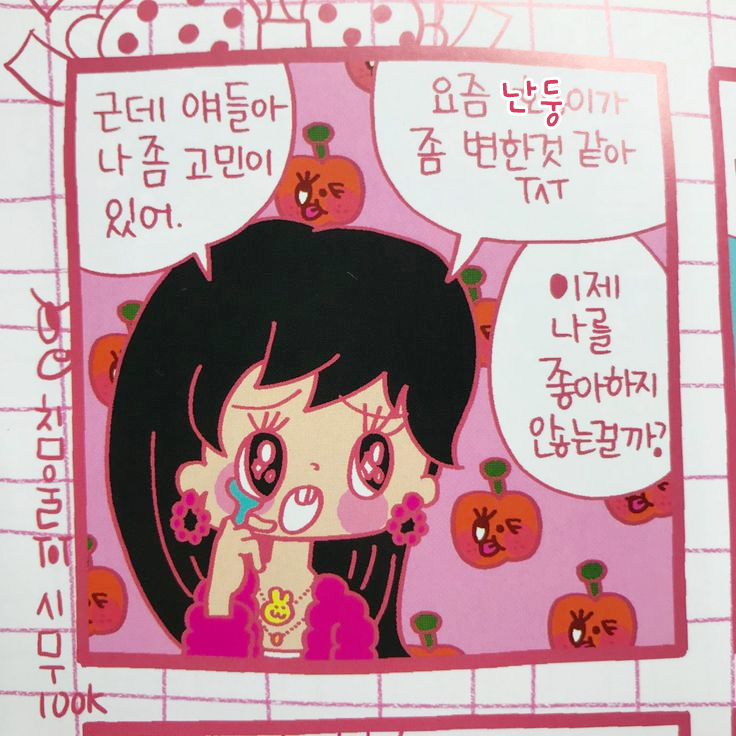 근데 얘들아
나 좀 고민이
있어.
요즘 난둥이가
좀 변한것 같아
TAT
이제
나를
좋아하지
않는걸까?
100K